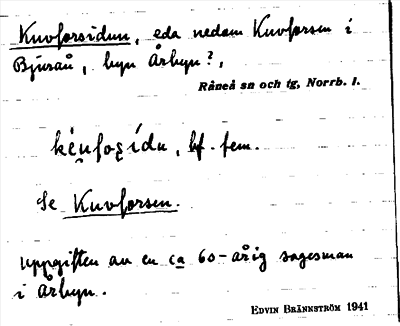 Kuvforsidun, eda nedom Kuvforsen i
Bjurån, byn Årbyn?,
Råneå sn och tg, Norrb. l.
bf. fem.
Se Kuvforsen.
uppgiften av en ca 60-årig sagesman
i Årbyn.
EDVIN BRÄNNSTRÖM 1941